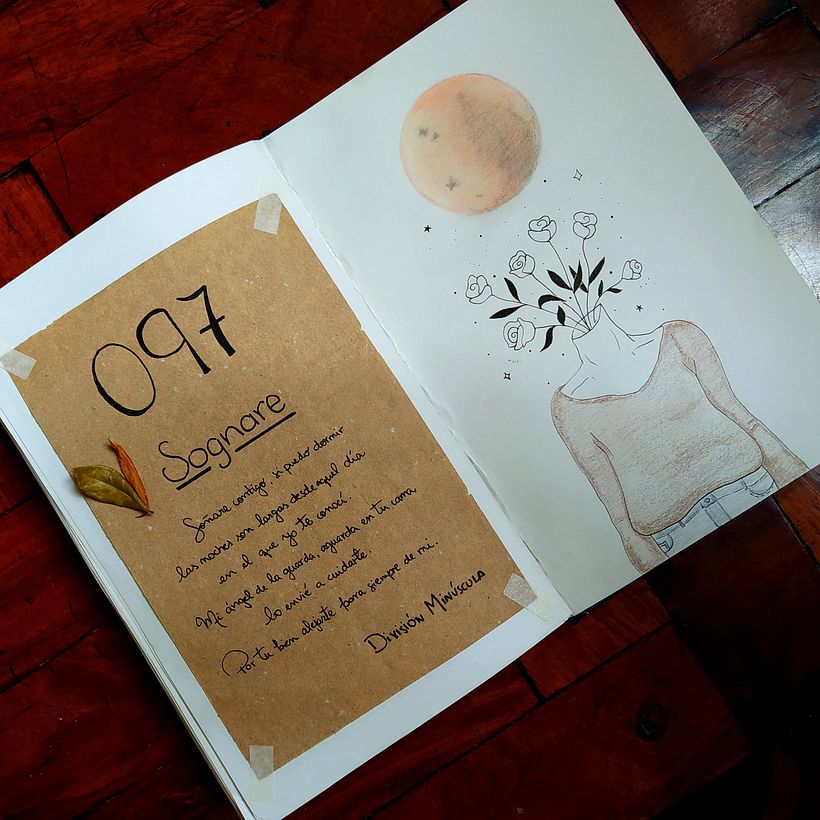 097
Sognare
Soñare contigo, si puedo dormir
las noches son largas desde aquel día
en el que yo te conocí.
Mi ángel de la guarda, aguarda en tu cama
lo envié a cuidarte.
Por tu bien alejarte para siempre de mi.
DIVISIÓN MINÚSCULA